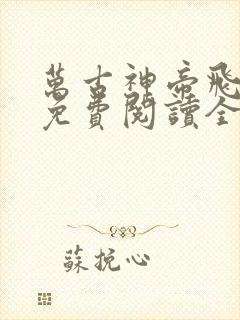 萬古神帝飛
免費閱讀全
蘇挽心